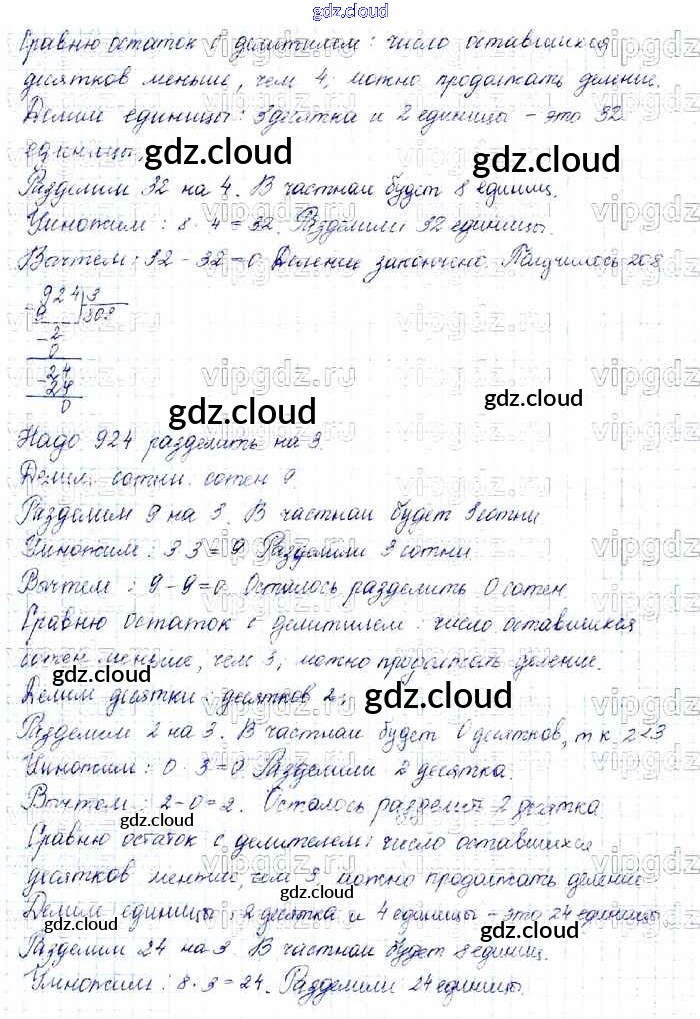 gdz.cloud
Сравню остаток с делитилем: число оставшихся
десятков меньше, чем 4, можно продолжать деление.
Делим единицы: 3 десятка и 2 единицы - это 32
единицы.
Разделим 32 на 4. В частнам будет 8 единиц.
Умножим: 8 · 4 = 32. Разделили 32 единицы.
Вычтем: 32 - 32 = 0 Деление закончено. Получилось 208
924 3
9 308
-2
0
-24
24
0
Надо 924 разделить на 3.
Делим сотни: сотен 9
Разделим 9 на 3. В частнам будет 3 сотни
Умножим: 3 3 = 9 Разделили 3 сотни
Вычтем: 9 - 9 = 0. Осталось разделить 0 сотен
Сравню остаток с делитилем: число оставшихся
сотен меньше, чем 3, можно продолжать деление.
Делим десятки: десятков 2.
Разделим 2 на 3. В частнам будет 0 десятков, т к 2<3
Умножим: 0 · 3 = 0 Разделили 2 десятка.
Вычтем: 2 - 0 = 2. Осталось разделит 2 десятка
Сравню остаток с делителем: число оставшихся
десятков менше, чем 3, можно продолжать деление
Делим единицы: 2 десятка и 4 единицы - это 24 единицы
Разделим 24 на 3. В частнам будет 8 единиц.
Умножим: 8 · 3 = 24. Разделили 24 единицы.